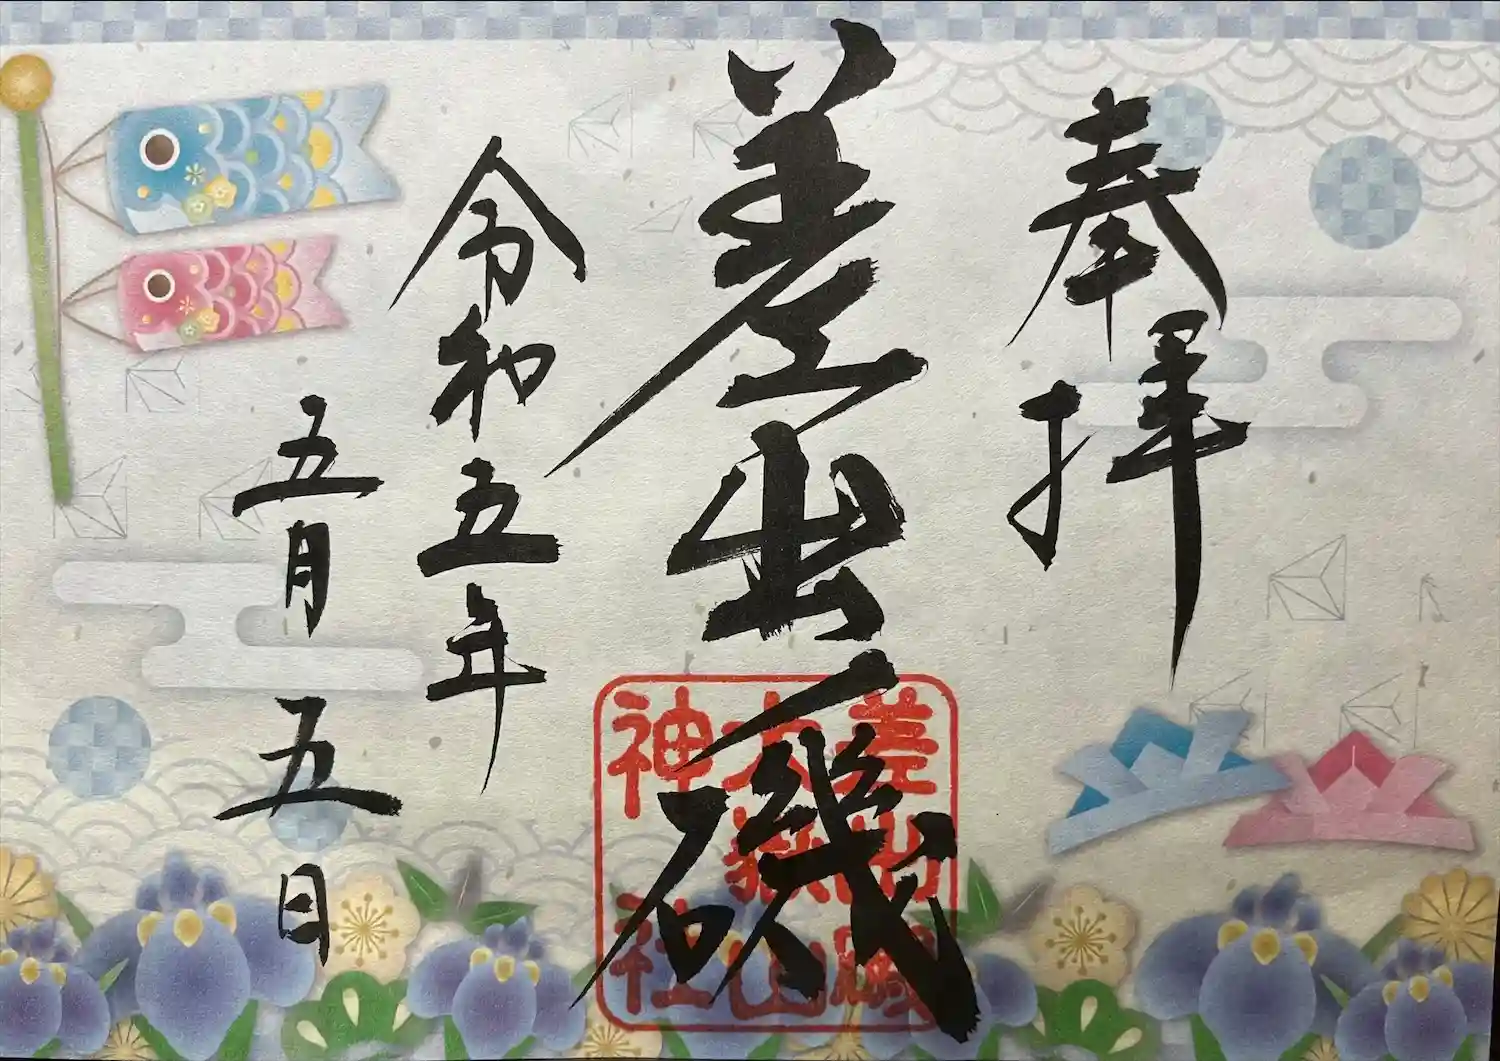 奉拝
差出磯
令和五年
五月五日
差出磯
大嶽山
神社